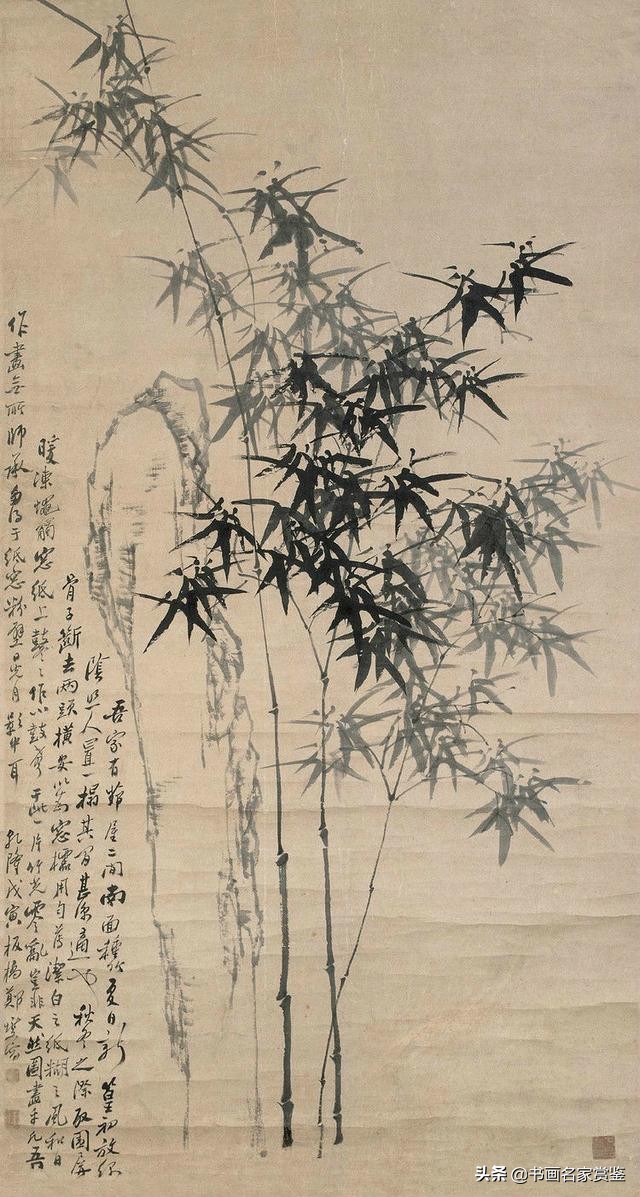 吾家有茆屋二間南面種竹夏日新篁初放綠
陰照人置一榻其間甚涼適也秋冬之際取圍屏
骨子斷去兩頭橫安以為窓櫺用勻薄潔白之紙糊之風和日
暖凍蠅觸窓紙上鼕々作小鼓聲于此一片竹光零亂豈非天然圖畫乎凡吾
作畫無所師承多得于紙窓粉壁日光月影中耳 乾隆戊寅板橋鄭燮寫
头条 @书画名家赏鉴